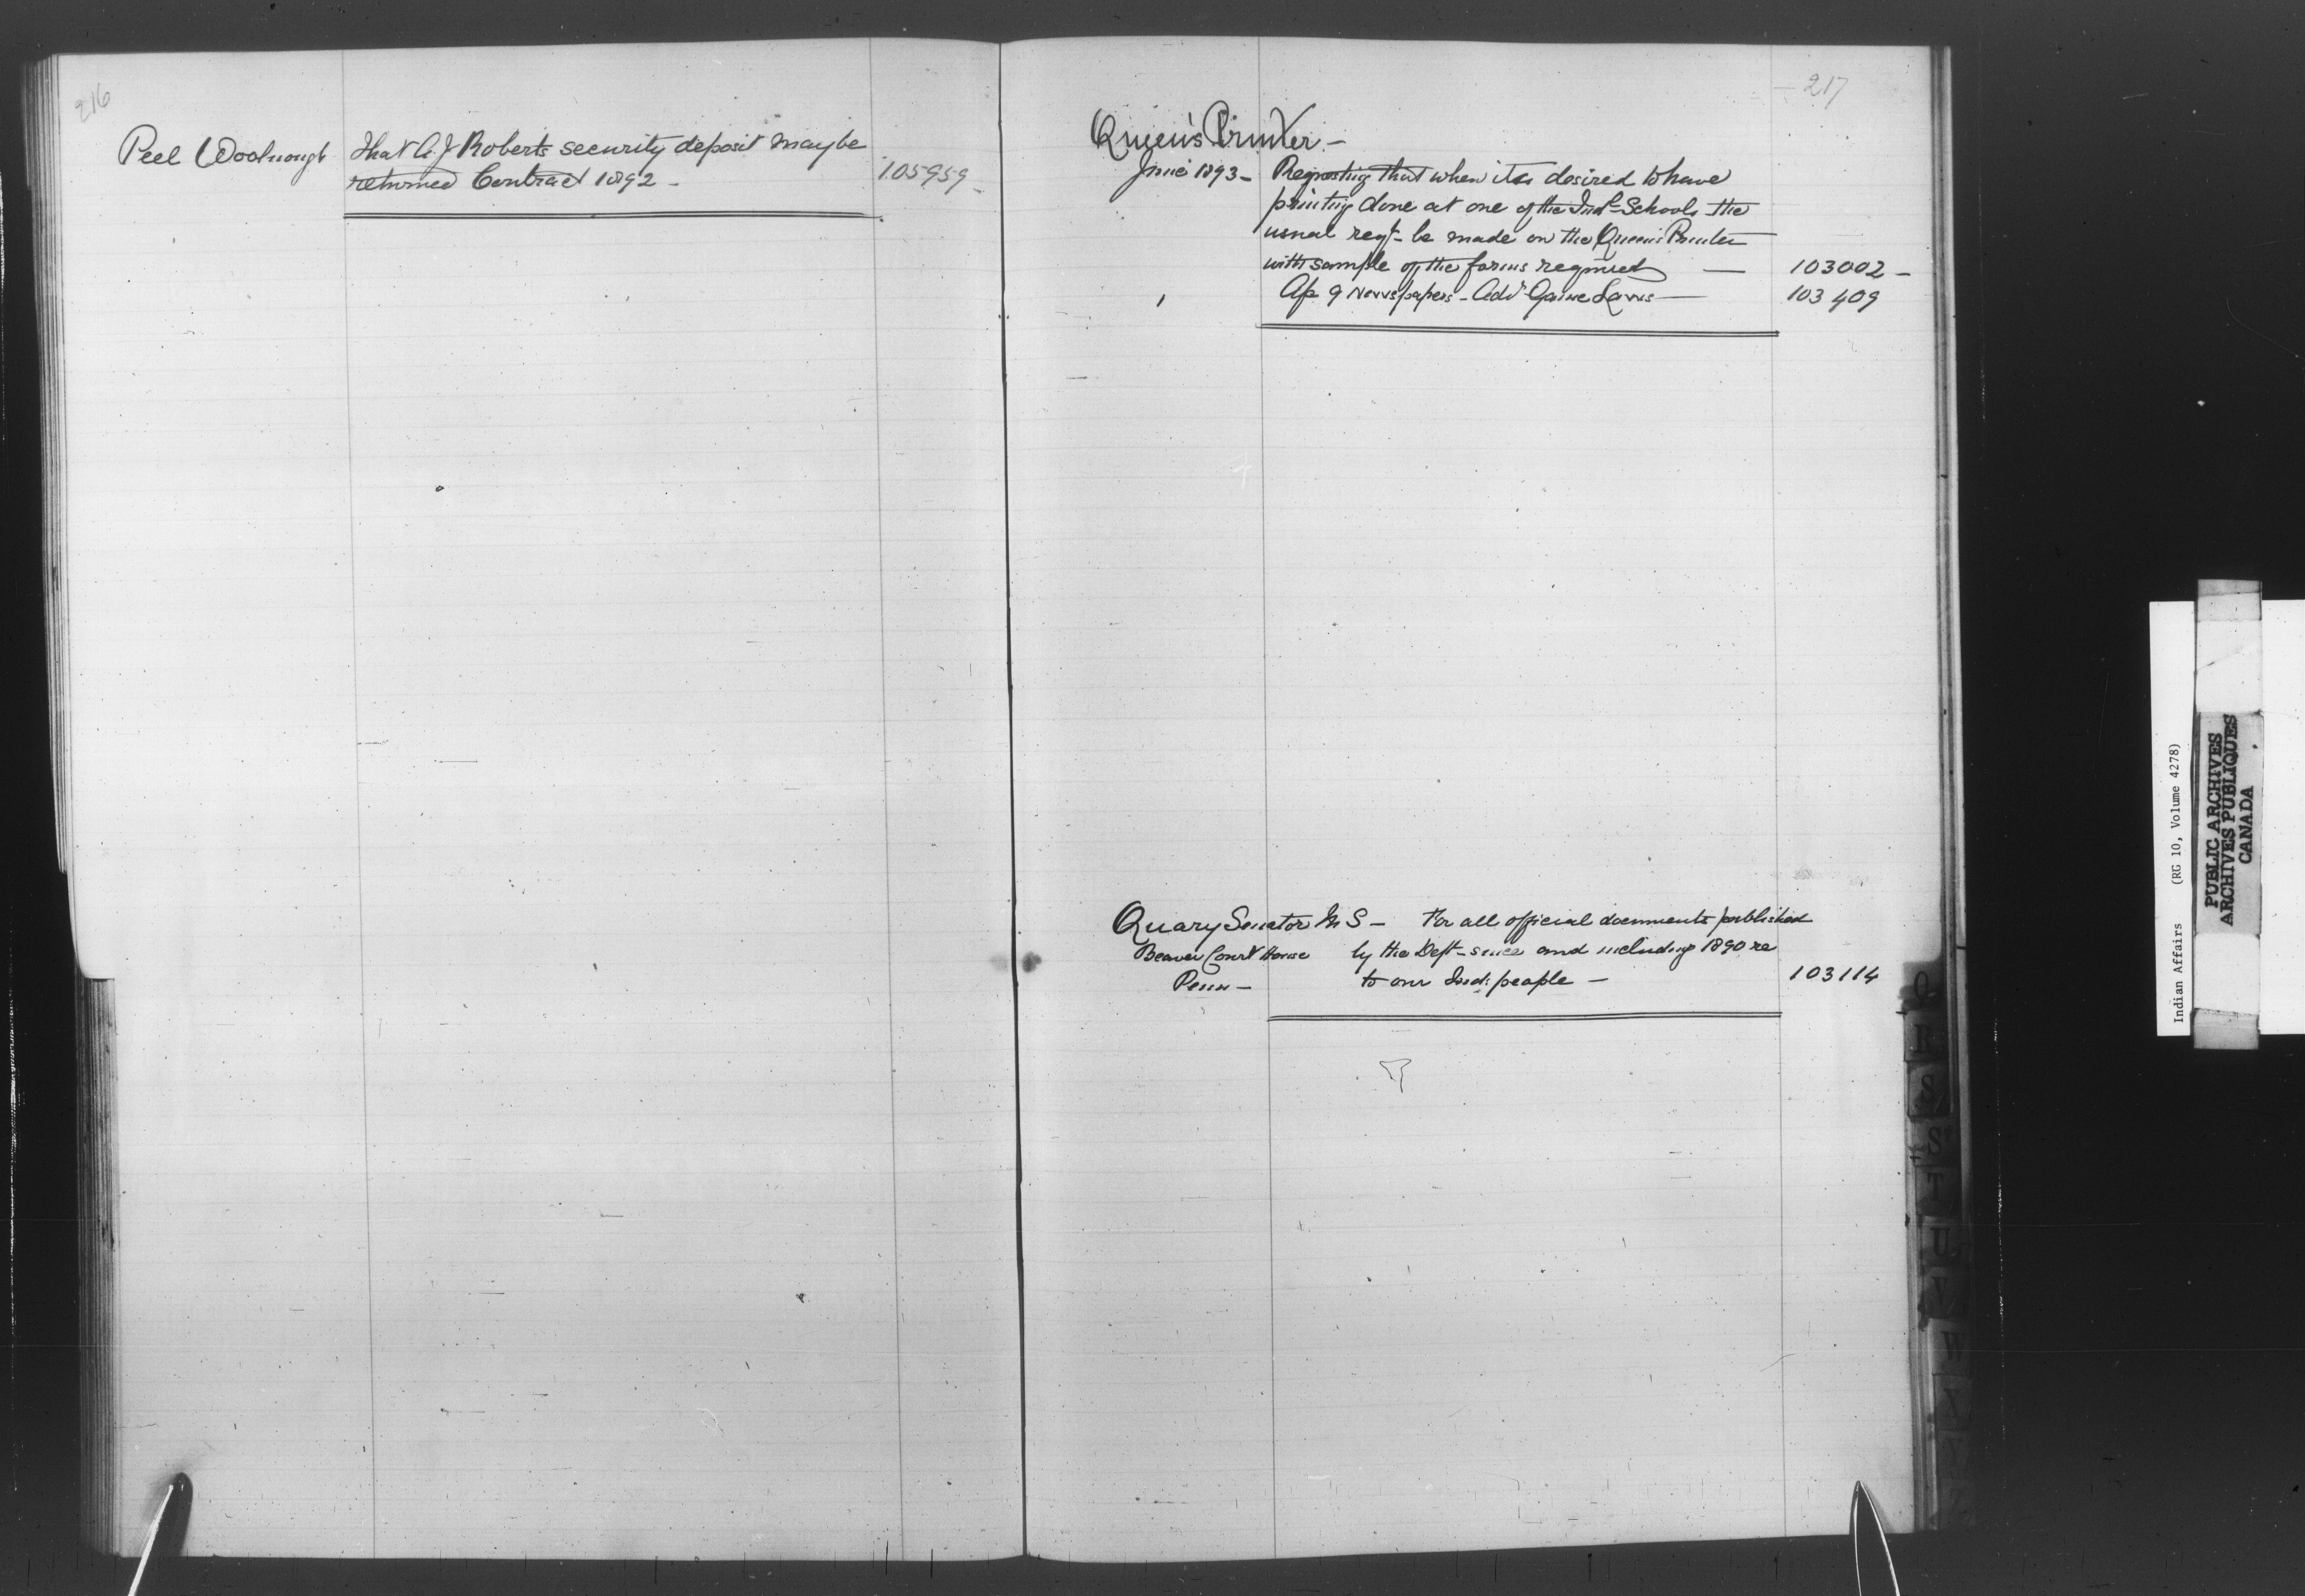 216
Peel Woolnough That A. J Roberts security deposit may be
returned Contract 1892 - 105959 -
217
Queen's Printer -
June 1893 - Requesting that when it is desired to have
printing done at one of the Indl Schools the
usual reqt- be made on the Queen's Printer
with sample of the forms required — 103002 -
Ap 9 Newspapers - Advt Game Laws — 103409
Quary Senator M S - For all official documents published
Beaver Court House by the Dept - since and including 1890 re
Penn - to our Ind: people - 103114
Q
R
S
S
T
U
V
W
Indian Affairs (RG 10, Volume 4278)
PUBLIC ARCHIVES
ARCHIVES PUBLIQUES
CANADA